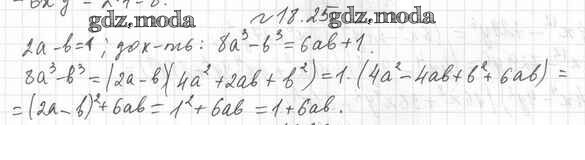 gdz.moda №18.25 gdz.moda
2a-b=1; док-ть: 8a³-b³=6ab+1.
8a³-b³=(2a-b)(4a²+2ab+b²)=1·(4a²-4ab+b²+6ab)=
=(2a-b)²+6ab=1²+6ab=1+6ab.